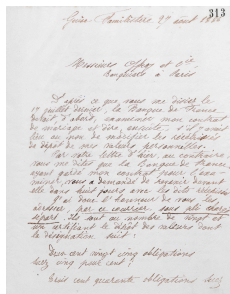 313
Guise Familistère, 29 août 18
Messieurs Offroy et Cie
Banquiers à Paris
D'après ce que vous me disiez le
1er juillet dernier, la Banque de France
devait, d'abord, examiner mon contrat
de mariage et dire, ensuite, s'il y avait
lieu ou non de modifier les récépissés
de dépôt de mes valeurs personnelles.
Par votre lettre d'hier, au contraire,
vous me dites que la Banque de France,
ayant gardé mon contrat pour l'exa-
miner, vous a demandé de repasser devant
elle dans huit jours avec les dits récépissés
J'ai donc l'honneur de vous les
adresser par ce courrier sous pli chargé
séparé. Ils sont au nombre de vingt et
un certifiant le dépôt des valeurs dont
la désignation suit:
Deux cent vingt cinq obligations
trois pour cent
Trois cent quarante obligations